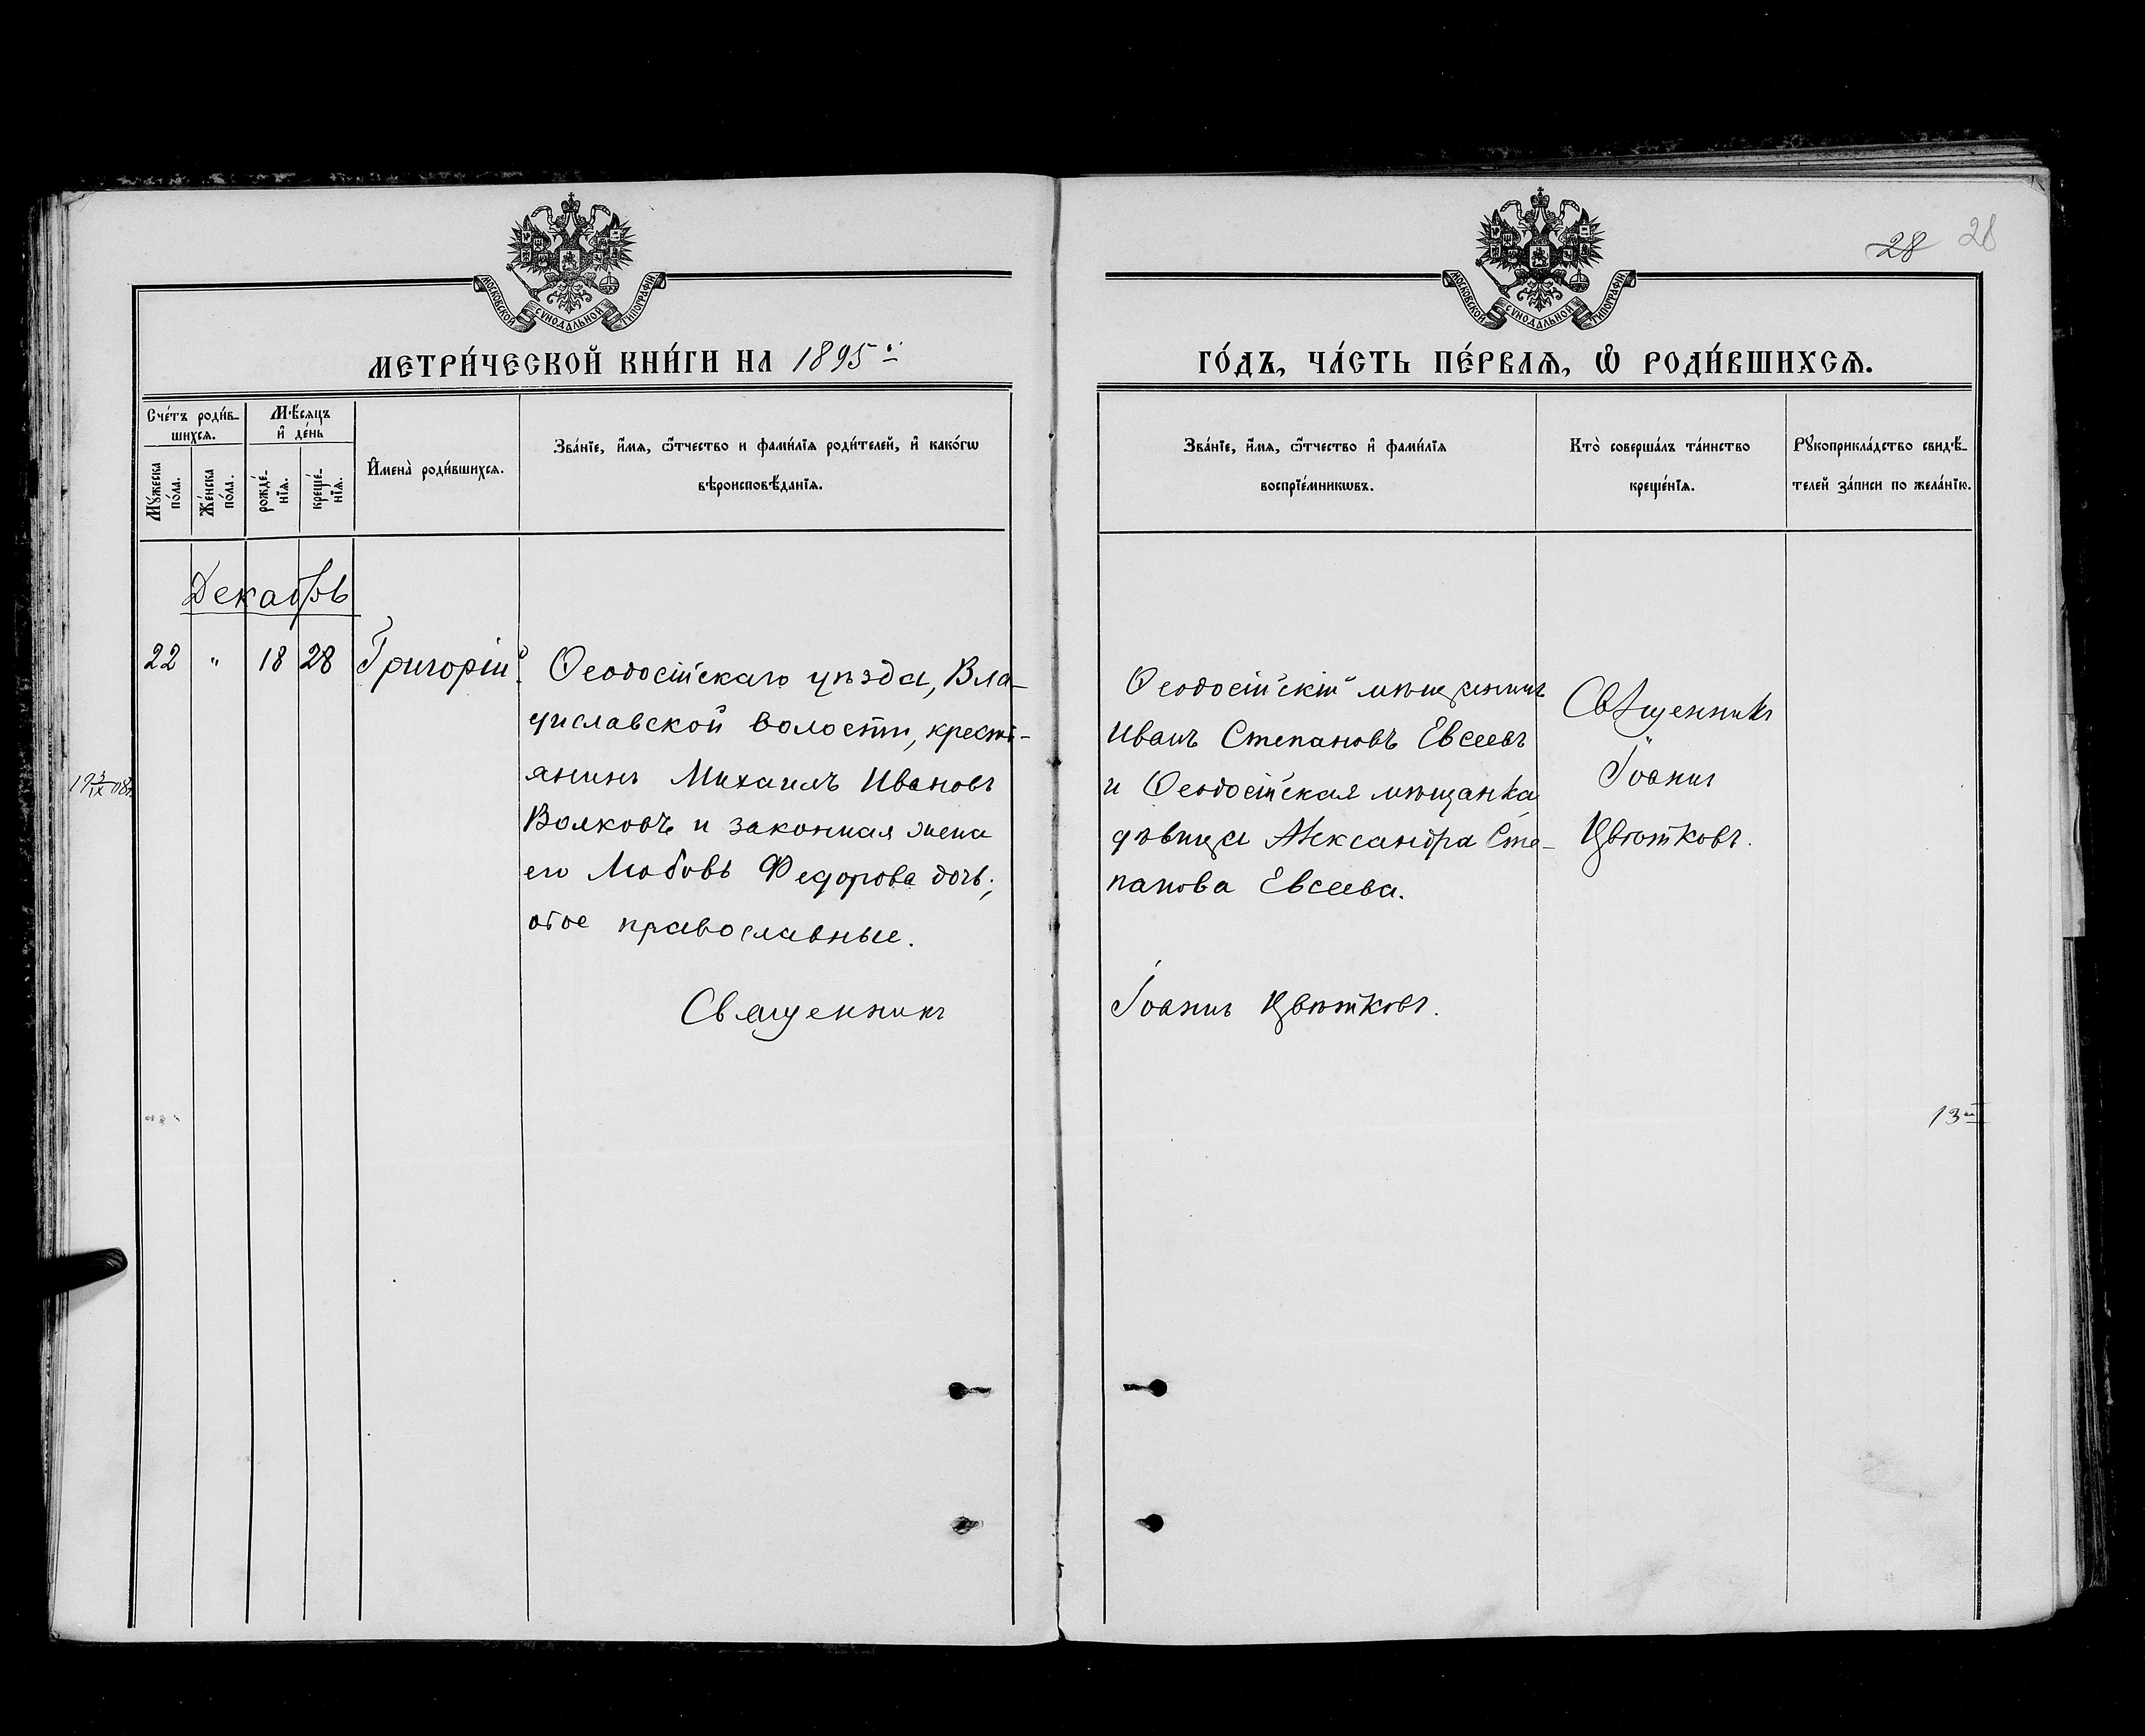 28 28
МОСКОВСКОЙ СѴНОДАЛЬНОЙ ТИПОГРАФІИ
МОСКОВСКОЙ СѴНОДАЛЬНОЙ ТИПОГРАФІИ
МЕТРИ́ЧЕСКОЙ КНИ́ГИ НА 1895й
ГО́ДЪ, ЧА́СТЬ ПЕ́РВАѦ, Ѽ РОДИ́ВШИХСѦ.
Сче́тъ роди́в-
шихсѧ.
Мѣ́сяцъ
и҆ де́нь
Мꙋ́жеска
по́ла.
Же́нска
по́ла.
рожде́-
нїѧ.
креще́-
нїѧ.
И҆мена̀ роди́вшихсѧ.
Зва́нїе, и҆́мѧ, ѿтчество и фами́лїѧ роди́телей, и҆ како́гѡ
вѣроисповѣ́данїѧ.
Зва́нїе, и҆́мѧ, ѿтчество и҆ фами́лїѧ
воспрїе́мникѡвъ.
Кто̀ соверша́лъ та́инство
креще́нїѧ.
Рꙋкоприкла́дство свидѣ́-
телей за́писи по жела́нїю.
Декабрь
22 " 18 28 Григорій
Ѳеодосійскаго уѣзда, Вла-
диславской волости, кресть-
янинъ Михаилъ Ивановъ
Волковъ и законная жена
его Любовь Федорова дочь;
обое православные.
Священникъ
Ѳеодосійскій мѣщанинъ
Иванъ Степановъ Евсеевъ
и Ѳеодосійская мѣщанка
дѣвица Александра Сте-
панова Евсеева.
Іоаннъ Цвѣтковъ.
Священникъ
Іоаннъ
Цвѣтковъ.
19 3/IX 08